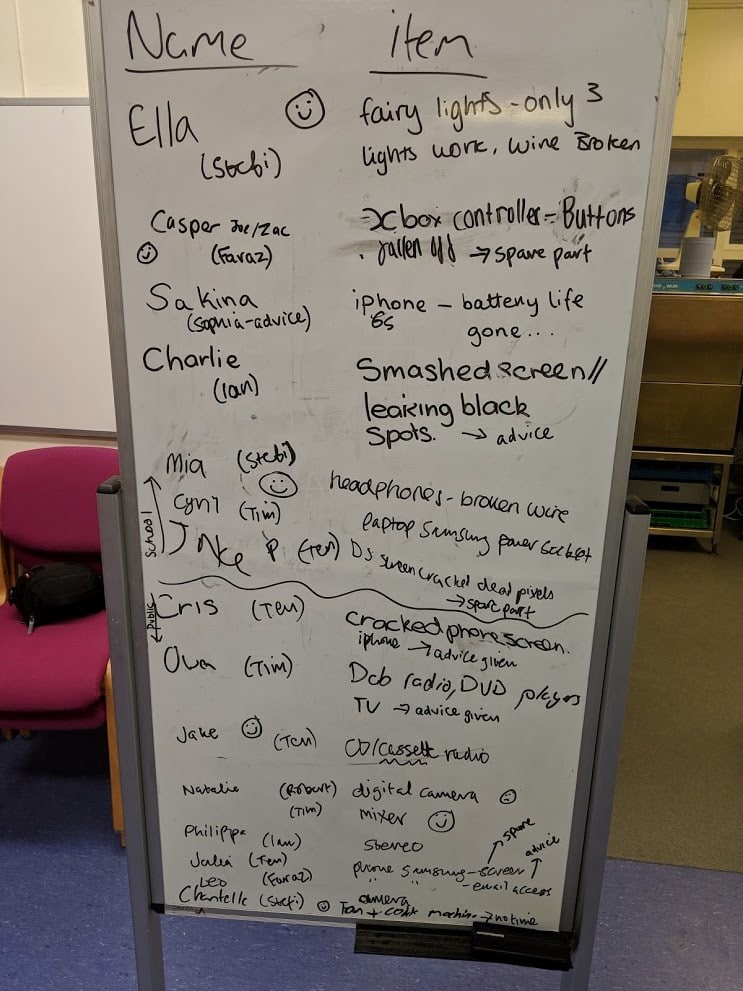 Name item
Ella fairy lights - only 3
(Stebi) lights work, wire Broken
Casper Joe/Zac Xbox controller - Buttons
(Faraz) fallen off → spare part
Sakina iphone - battery life
(Sophia-advice) 6s gone...
Charlie Smashed screen//
(Ian) leaking black
spots. → advice
Mia (Stebi) headphones - broken wire
(Tim) laptop Samsung power socket
School
Jake P (Ten) DS screen cracked dead pixels
→ spare part
Public
Cris (Ten) cracked phone screen.
iphone → advice given
(Tim) Dab radio, DVD players
TV → advice given
Jake (Ten) CD/Cassette radio
Natalie (Robert) digital camera
(Tim) mixer
Philippa (Ian) stereo
Julia (Ten) phone Samsung - screen → spare
Leo (Faraz) " " - email access → advice
camera
Chantelle (Stefi) Fan + machine → no time